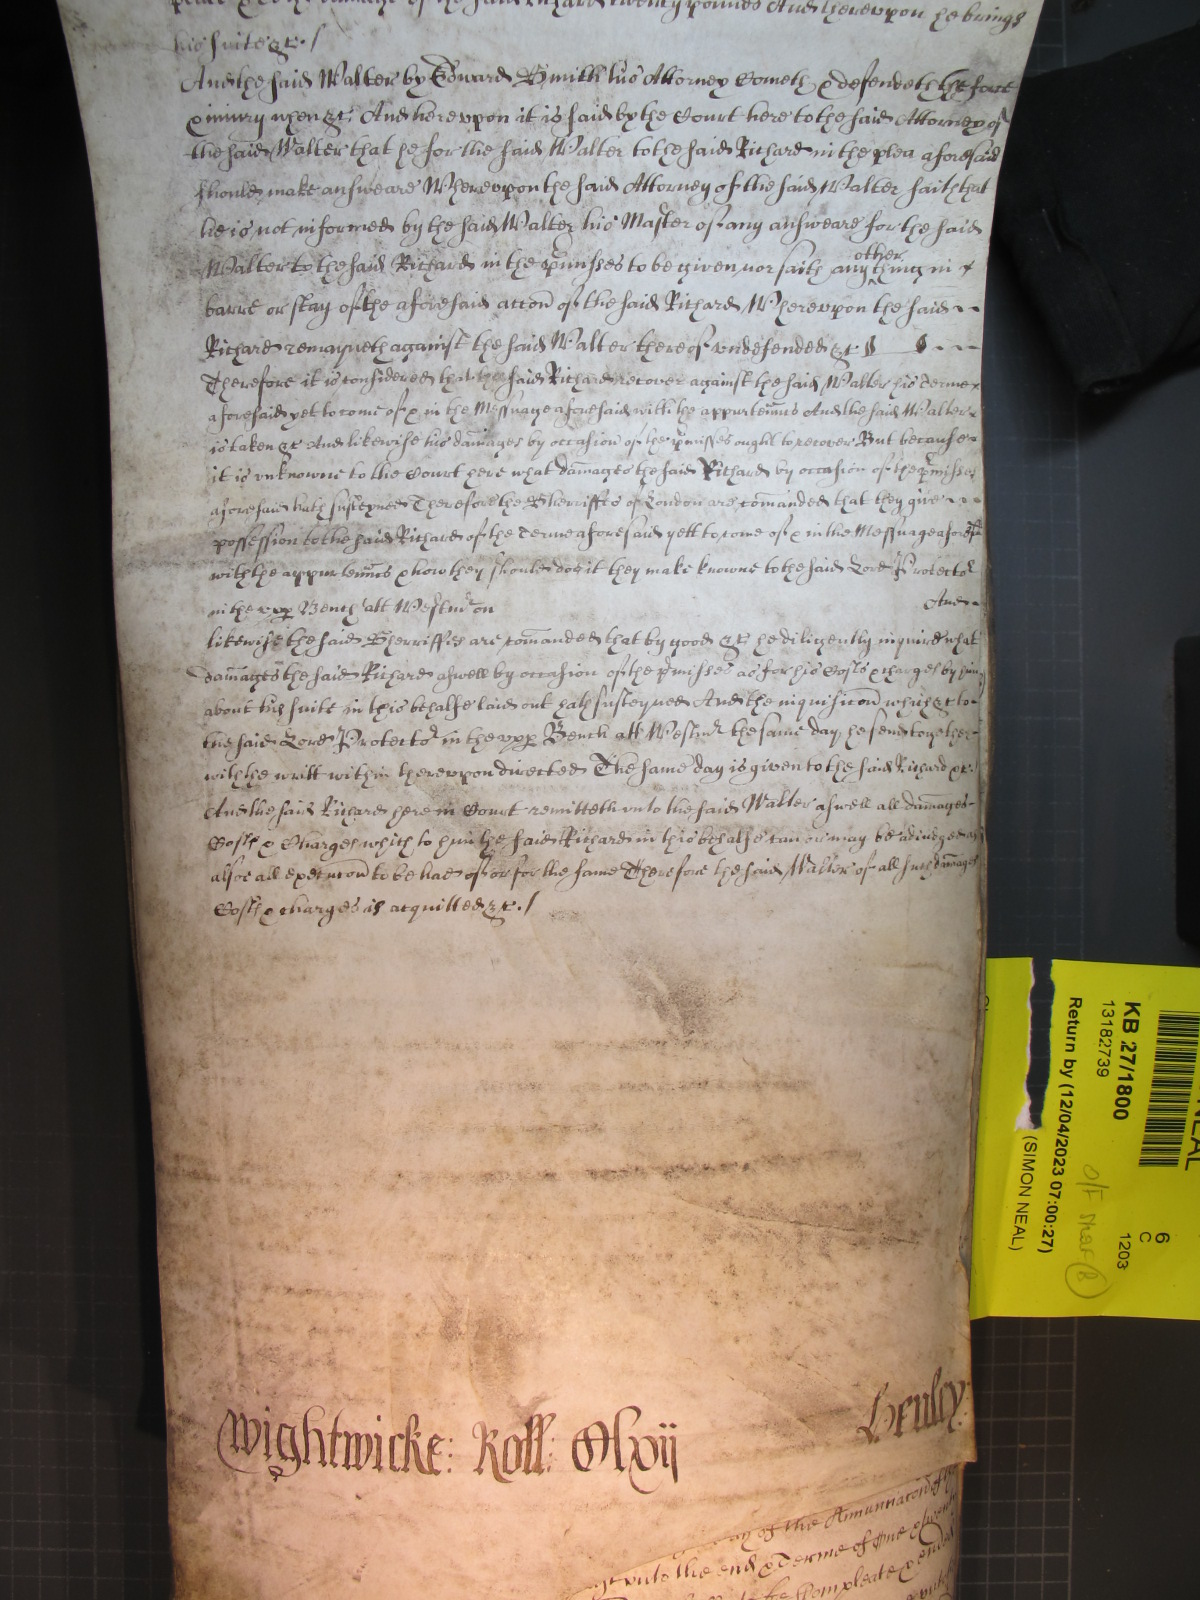 damage of the said Richard twenty pounds And therevpon he brings
his suite &c./
And the said Walter by Edward Smith his Attorney Cometh & defendeth the force
& iniury when &c. And herevpon it is said by the Court here to the said Attorney of
the said Walter that he for the said Walter to the said Richard in the plea aforesaid
should make answeare Wherevpon the said Attorney of the said Walter saith that
he is not informed by the said Walter his Master of any answeare for the said
Walter to the said Richard in the p̄misses to be given nor saith any other thing in
barre or stay of the aforesaid accōn of the said Richard Wherevpon the said
Richard remayneth against the said Walter thereof vndefended &c
Therefore it is considered that the said Richard recover against the said Walter his Terme
aforesaid yet to come of & in the Messuage aforesaid with the appurtenn̄cs And the said Walter
is taken &c And likewise his dam̄ages by occasion of the p̄misses ought to recover But because
it is vnknowne to the Court here what dam̄ages the said Richard by occasion of the p̄misses
aforesaid hath susteyned Therefore the Sherriffes of London are com̄anded that they give
possession to the said Richard of the Terme aforesaid yett to come of & in the Messuage aforesd
with the appurtenn̄cs & how they should doe it they make knowne to the said Lord Protector
in the vpp Bench att Westmr on And
likewise the said Sherriffes are com̄anded that by good &c he diligently inquire what
dam̄ages the said Richard aswell by occasion of the p̄misses as for his Costs & charges by him
about his suite in this behalfe laid out hath susteyned And the inquisicōn which &c to
the said Lord Protector in the vpp Bench att Westmr the same day he send together
with the writt within therevpon directed The same day is given to the said Richard &c.
And the said Richard here in Court remitteth vnto the said Walter aswell all dam̄ages
Costs & Charges which to him the said Richard in this behalfe can or may be adiudged as
alsoe all execucōn to be had of or for the same Therefore the said Walter of all such dam̄ages
Costs & charges is acquitted &c./
Wightwicke: Roll: Mlxvij
Henley:
of the Annunciacōn of
vnto the end & Terme of One
Compleate & ended
KB 27/1800
13182739
Return by (12/04/2023 07:00:27)
(SIMON NEAL)
6
C
1203
NEAL